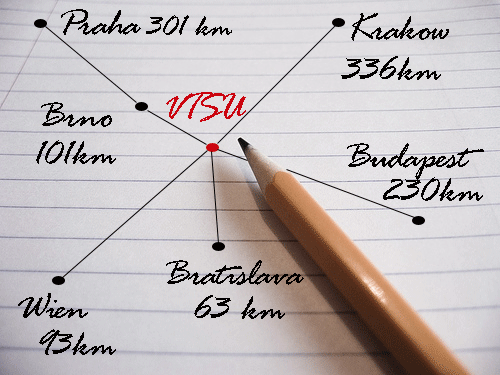 Praha 301 km
Krakow
336km
VTSU
Brno
101km
Budapest
230km
Bratislava
63 km
Wien
93km